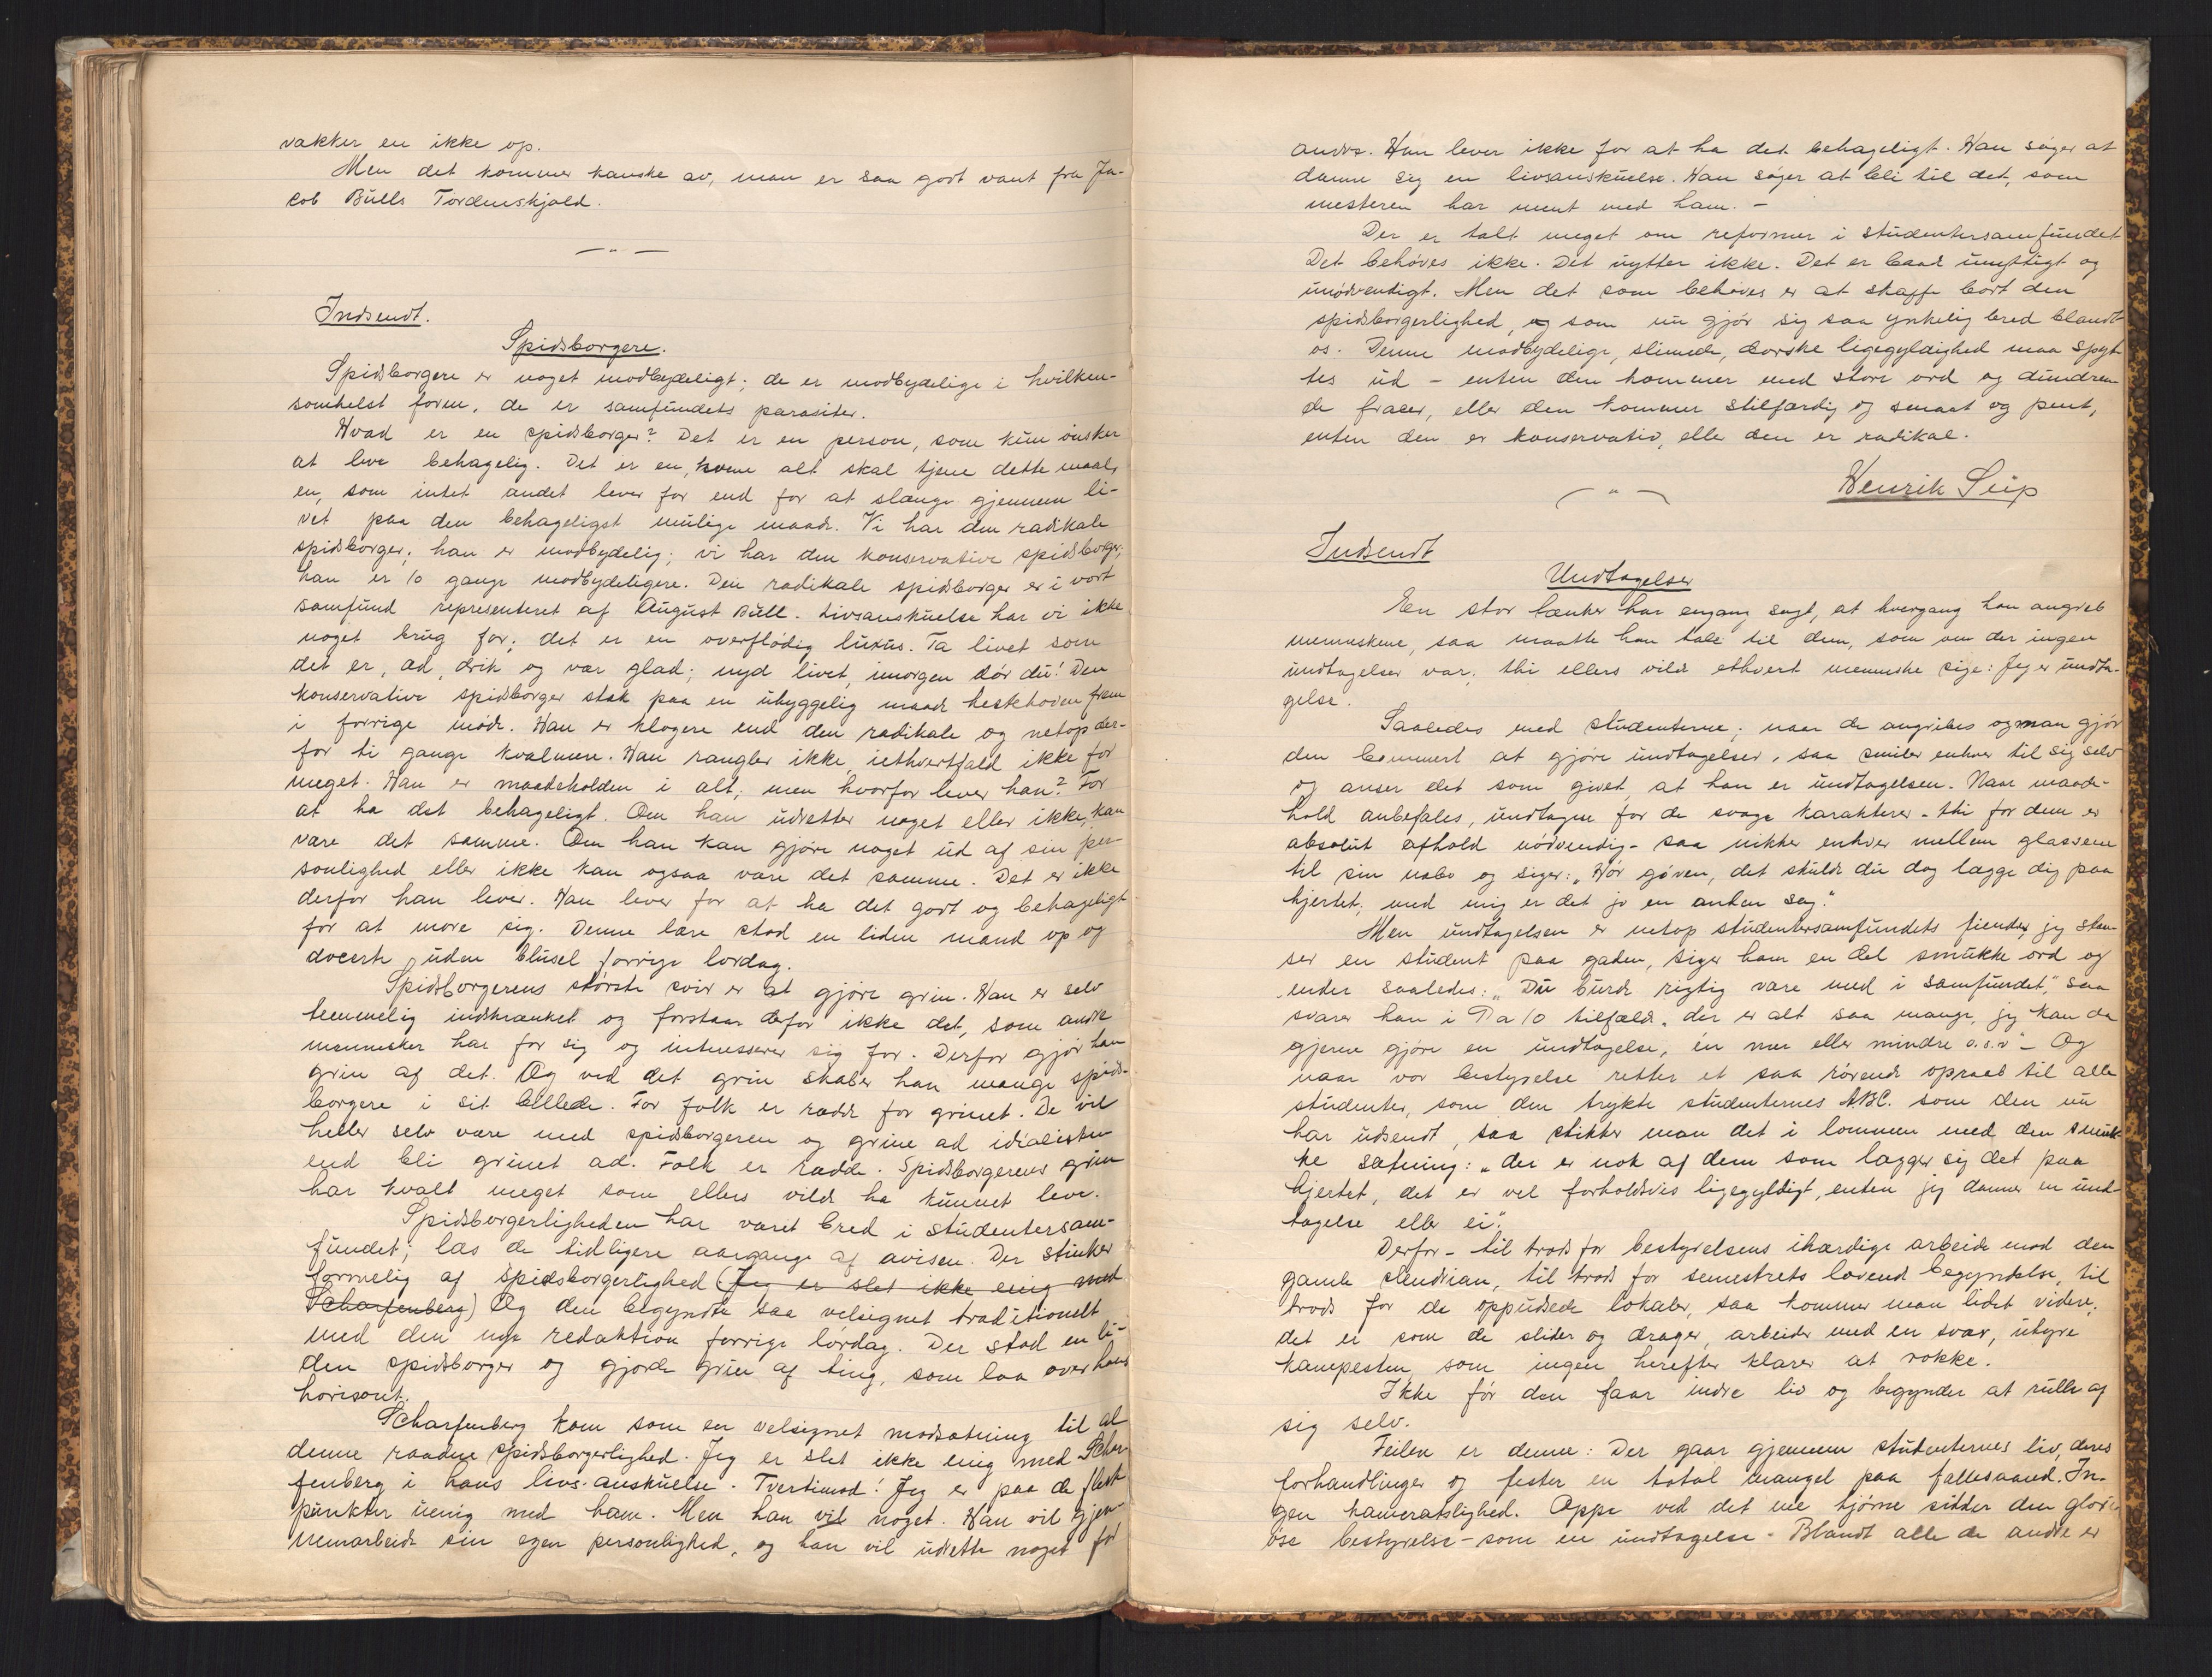 vakker en ikke op.
Men det kommer kanske av, man er saa godt vant fra Ja-
cob Bulls Tordenskjold.
— " —
Indsendt.
Spidsborgere.
Spidsborgere er noget modbydeligt; de er modbydelige i hvilken-
somhelst form, de er samfundets parasiter.
Hvad er en spidsborger? Det er en person, som kun ønsker
at leve behagelig. Det er en, hvem alt skal tjene dette maal,
en, som intet andet lever for end for at slænge gjennem li-
vet paa den behageligst mulige maade. Vi har den radikale
spidsborger; han er modbydelig; vi har den konservative spidsborger;
han er 10 gange modbydeligere. Den radikale spidsborger er i vort
samfund repræsenteret af August Bull. Livsanskuelse har vi ikke
noget brug for; det er en overflødig luxus. Ta livet som
det er, æd, drik og vær glad; nyd livet, imorgen dør du! Den
konservative spidsborger stak paa en uhyggelig maade hestehoven frem
i forrige møde. Han er klogere end den radikale og netop der-
for ti gange kvalmere. Han rangler ikke, iethvertfald ikke for
meget. Han er maadeholden i alt; men hvorfor lever han? For
at ha det behageligt. Om han udretter noget eller ikke, kan
være det samme. Om han kan gjøre noget ud af sin per-
sonlighed eller ikke kan ogsaa være det samme. Det er ikke
derfor han lever. Han lever for at ha det godt og behageligt
for at more sig. Denne lære stod en liden mand op og
docerte uden blusel forrige lørdag.
Spidsborgerens største svir er at gjøre grin. Han er selv
temmelig indskrænket og forstaar derfor ikke det, som andre
mennesker har for sig og interesserer sig for. Derfor gjør han
grin af det. Og ved det grin skaber han mange spids-
borgere i sit billede. For folk er rædde for grinet. De vil
heller selv være med spidsborgeren og grine ad idialisten
end bli grinet ad. Folk er rædde. Spidsborgerens grin
har kvalt meget som ellers vilde ha kunnet leve.
Spidsborgerligheden har været bred i studentersam-
fundet; læs de tidligere aargange af avisen. Der stinker
formelig af spidsborgerlighed (Jeg er slet ikke enig med
Scharfenberg) Og den begyndte saa velsignet traditionelt
med den nye redaktion forrige lørdag. Der stod en li-
den spidsborger og gjorde grin af ting, som laa over hans
horisont.
Scharfenberg kom som en velsignet modsætning til al
denne raadne spidsborgerlighed. Jeg er slet ikke enig med Schar-
fenberg i hans livs-anskuelse. Tvertimod! Jeg er paa de fleste
punkter uenig med ham. Men han vil noget. Han vil gjen-
nemarbeide sin egen personlighed, og han vil udrette noget for
andre. Han lever ikke for at ha det behageligt. Han søger at
danne sig en livsanskuelse. Han søger at bli til det, som
mesteren har ment med ham. -
Der er talt meget om reformer i studentersamfundet
Det behøves ikke. Det nytter ikke. Det er baade unyttigt og
unødvendigt. Men det som behøves er at skaffe bort den
spidsborgerlighed, som nu gjør sig saa ynkelig bred blandt
os. Denne modbydelige, slimede, dorske ligegyldighed maa spyt-
tes ud - enten den kommer med store ord og dundren-
de fraser, eller den kommer stilfærdig og smaat og pent,
enten den er konservativ, eller den er radikal.
Henrik Seip
— " —
Indsendt
Undtagelser
En stor tænker har engang sagt, at hvergang han angreb
menneskene, saa maatte han tale til dem, som om der ingen
undtagelser var; thi ellers vilde ethvert menneske sige: Jeg er undta-
gelse.
Saaledes med studenterne; naar de angribes og man gjør
den bommert at gjøre undtagelser, saa smiler enhver til sig selv
og anser det som givet, at han er undtagelsen. Naar maade-
hold anbefales, undtagen for de svage karakterer - thi for dem er
absolut afhold nødvendig - saa nikker enhver mellem glassene
til sin nabo og siger: „Hør gøven, det skulde du dog lægge dig paa
hjertet; med mig er det jo en anden sag."
Men undtagelsen er netop studentersamfundets fiende; jeg stan-
ser en student paa gaden, siger ham en del smukke ord og
ender saaledes: „Du burde rigtig være med i samfundet," saa
svarer han i 9 a 10 tilfælde „der er alt saa mange, jeg kan da
gjerne gjøre en undtagelse, én mer eller mindre o.s.v" - Og
naar vor bestyrelse retter et saa rørende opraab til alle
studenter, som den trykte studenternes ABC. som den nu
har udsendt, saa stikker man det i lommen med den smuk-
ke sætning: „der er nok af dem som lægger sig det paa
hjertet, det er vel forholdsvis ligegyldigt, enten jeg danner en und-
tagelse eller ei".
Derfor - til trods for bestyrelsens ihærdige arbeide mod den
gamle slendrian, til trods for semestrets lovende begyndelse, til
trods for de oppudsede lokaler, saa kommer man lidet videre;
det er som de slider og drager, arbeider med en svær, uhyre
kampesten, som ingen herefter klarer at rokke.
Ikke før den faar indre liv og begynder at rulle af
sig selv.
Feilen er denne: Der gaar gjennem studenternes liv, deres
forhandlinger og fester en total mangel paa fællesaand. In-
gen kameratslighed. Oppe ved det ene hjørne sidder den glori-
øse bestyrelse - som en undtagelse - Blandt alle de andre er